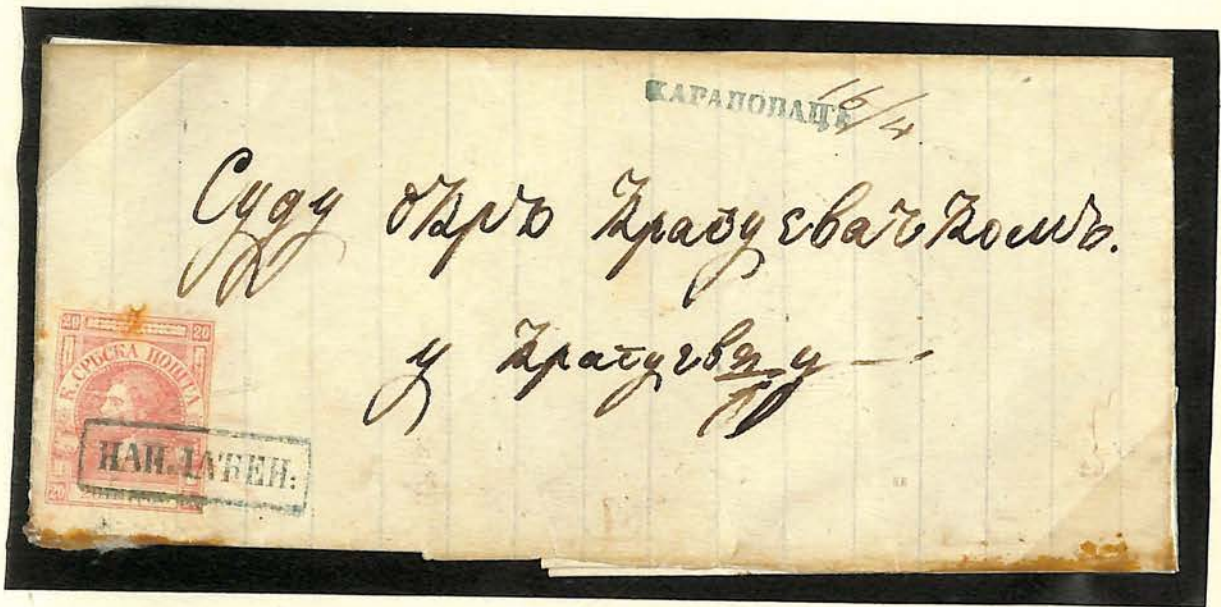 КАРАНОВАЦЪ 16/4
Суду окр. Крагуевачкомъ.
у Крагуевцу
20 20
К. СРБСКА ПОШТА
НАПЛАЋЕН:
20